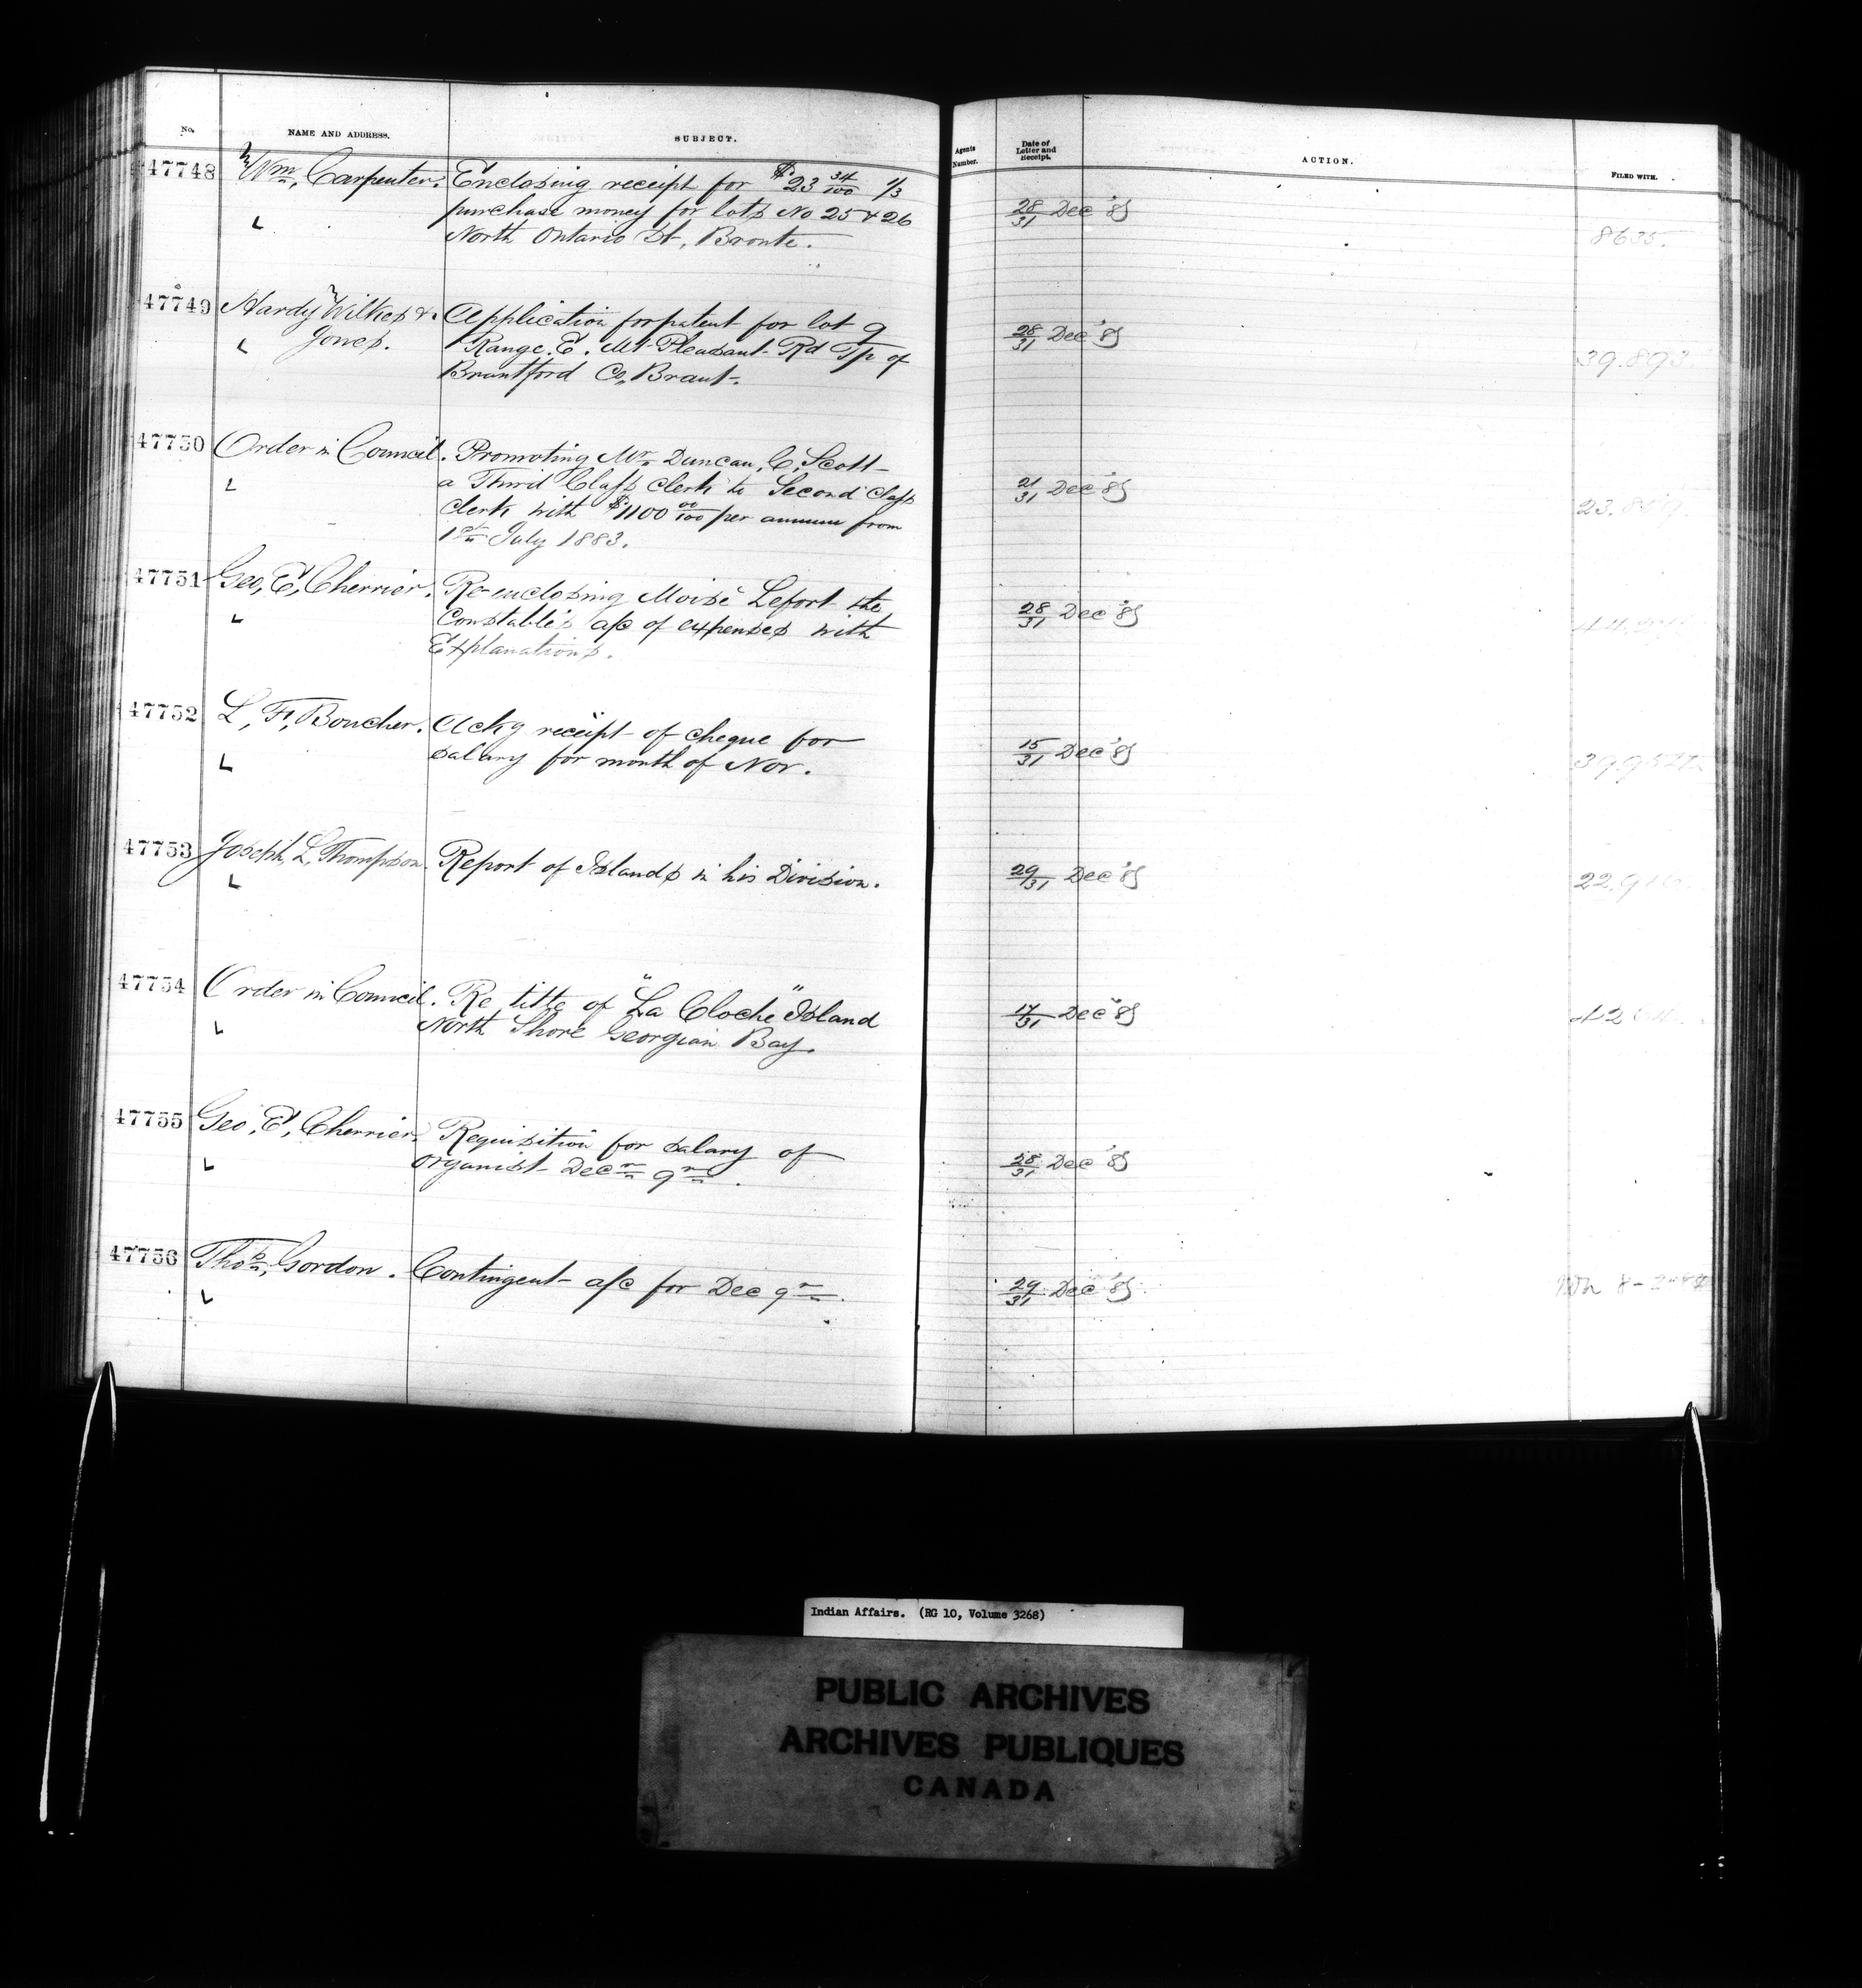 No. NAME AND ADDRESS. SUBJECT. Agents Number. Date of Letter and Receipt. ACTION. FILED WITH.
47748 Wm. Carpenter. Enclosing receipt for $23 34/100 1/3
purchase money for lots No 25 & 26 28/31 Dec '85
North Ontario St, Bronte. 8635.
47749 Hardy Wilkes & Application for patent for lot 9
Jones. Range. E. Mt Pleasant Rd Tp of 28/31 Dec '85
Brantford Co, Brant. 39.893.
47750 Order in Council. Promoting Mr. Duncan, C, Scott
a Third Class Clerk to Second Class 21/31 Dec '85
Clerk with $1100 00/100 per annum from
1st July 1883.
47751 Geo, E, Cherrier. Re-enclosing Moisé Lefort the
Constable's a/c of expenses with 28/31 Dec '85
Explanations.
47752 L, F, Boucher. Ackg receipt of cheque for
salary for month of Nov. 15/31 Dec '85
47753 Joseph, L, Thompson. Report of Islands in his Division. 29/31 Dec '85
47754 Order in Council. Re title of "La Cloche" Island
North Shore Georgian Bay. 17/31 Dec '85
47755 Geo, E, Cherrier. Requisition for salary of
organist Decr qr. 28/31 Dec '85
47756 Thos, Gordon. Contingent a/c for Dec qr. 29/31 Dec '85
Indian Affairs. (RG 10, Volume 3268)
PUBLIC ARCHIVES
ARCHIVES PUBLIQUES
CANADA